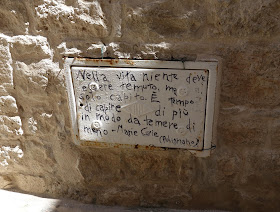 Nella vita niente deve
essere temuto, ma
solo capito. È tempo
di capire di più
in modo da temere di
meno - Marie Curie
(Polignano)